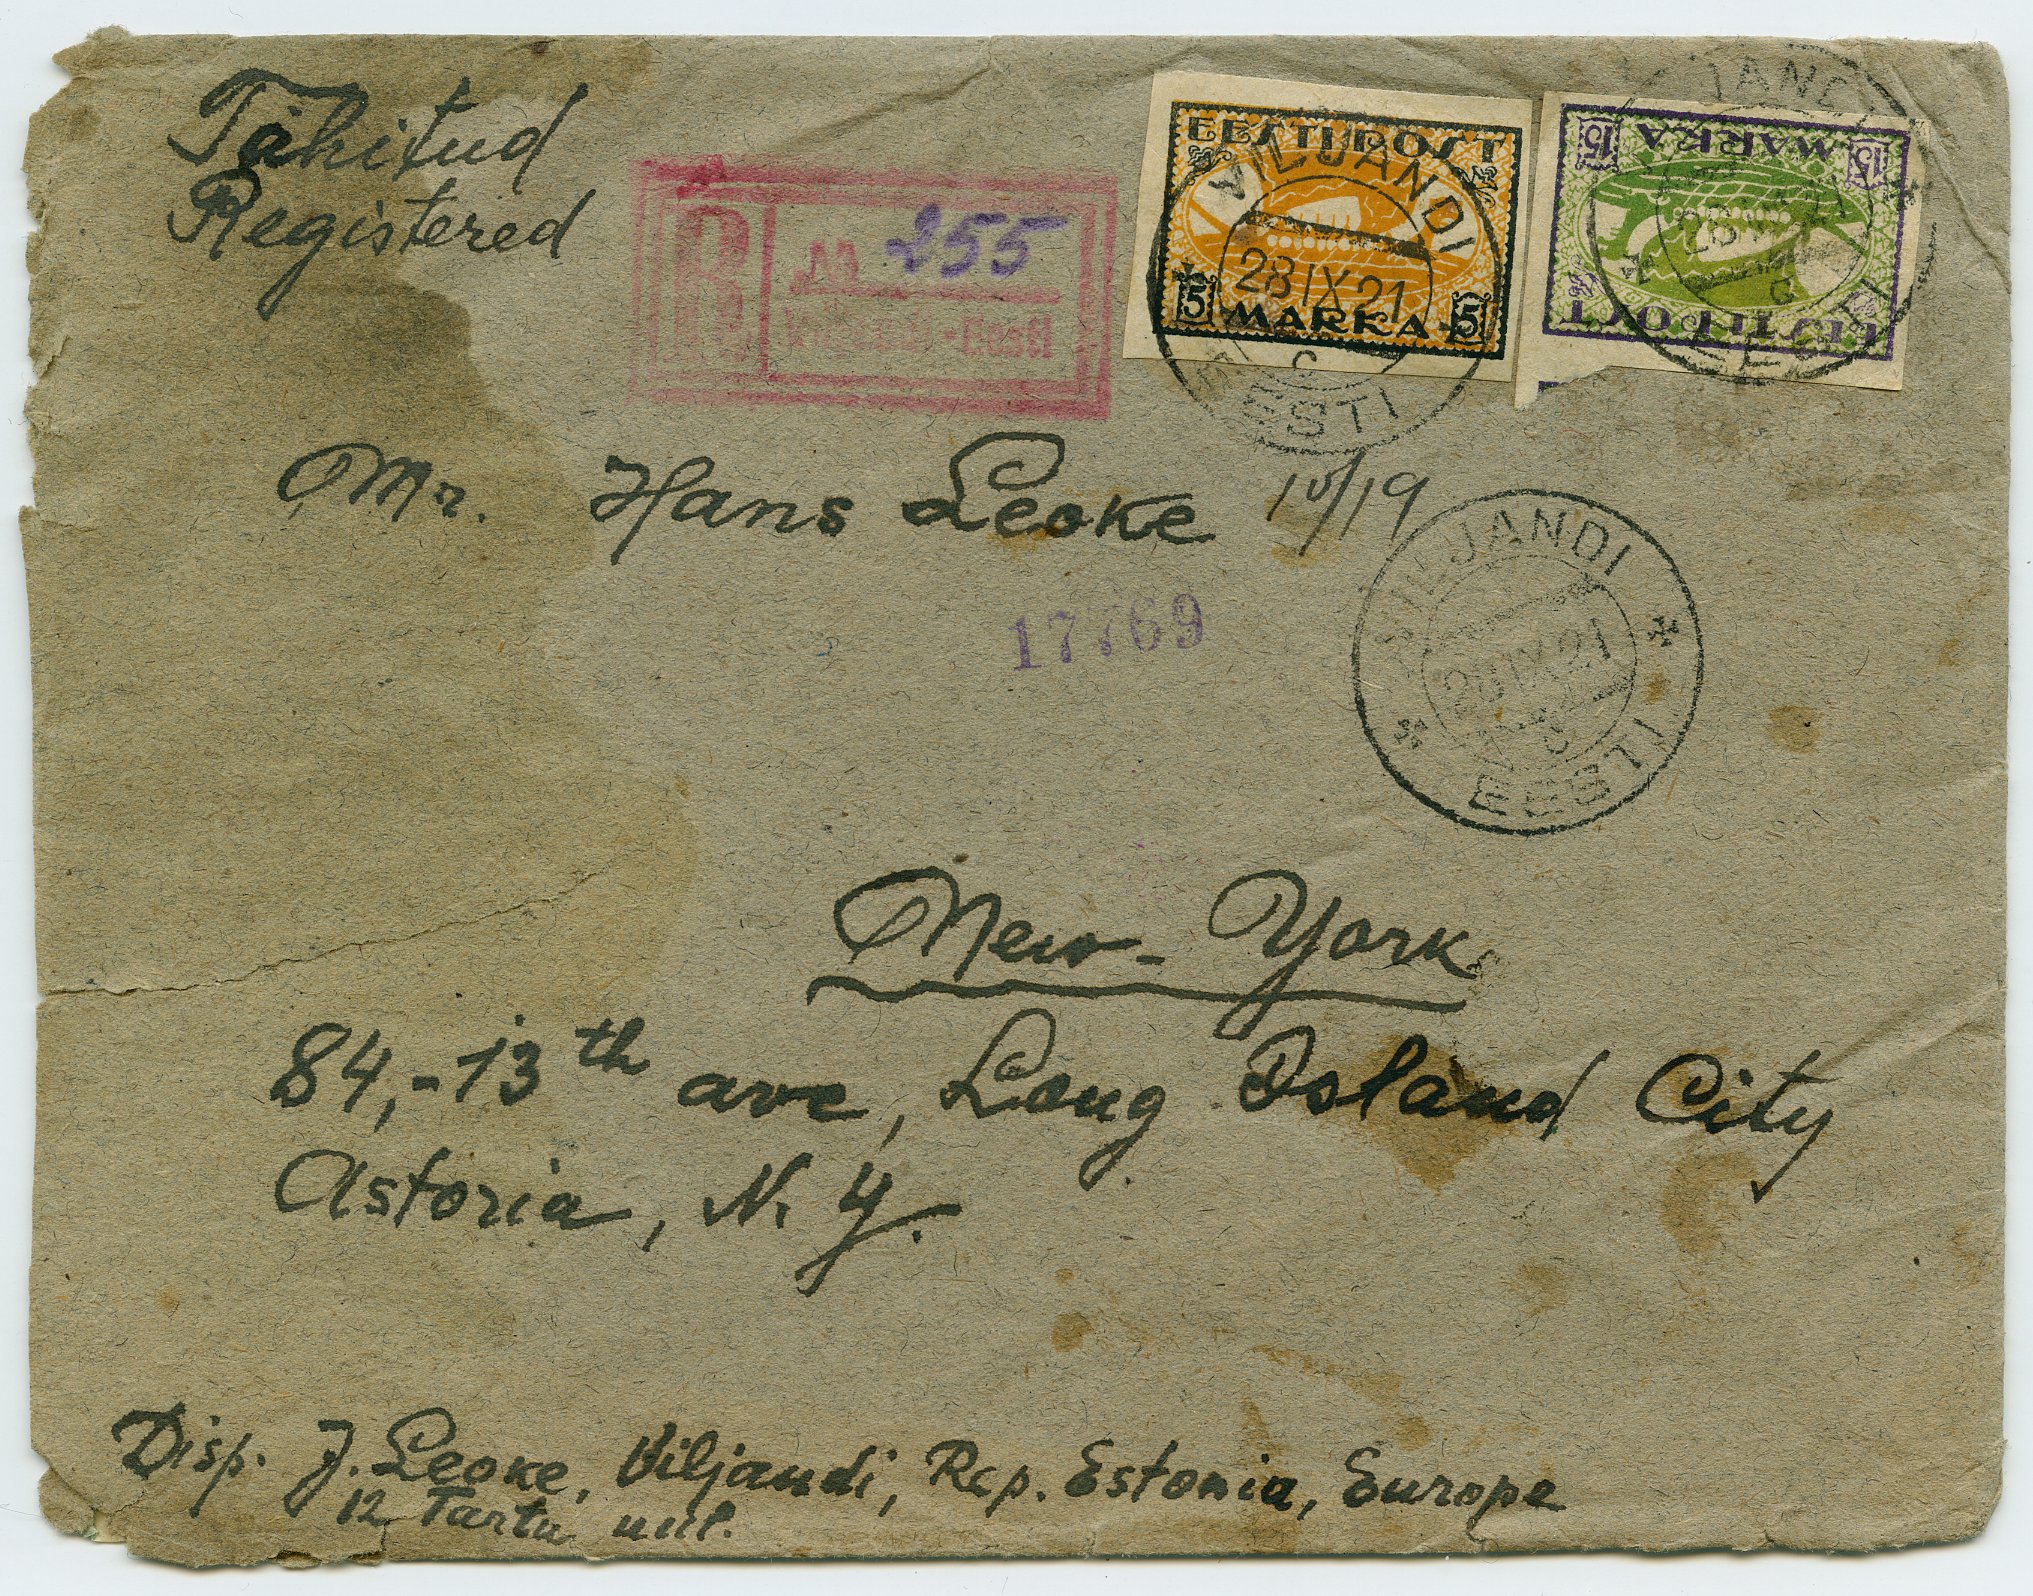 Tähitud
Registered
R
№ 255
Eesti
EESTI POST
5 MARKA 5
VILJANDI
28 IX 21
C
EESTI
15 MARKA 15
EESTI POST
VILJANDI
28 IX 21
C
EESTI
Mr. Hans Leoke 10/19
17769
VILJANDI
28 IX 21
C
EESTI
New-York
84,-13th ave, Long Island City
Astoria, N. Y.
Disp. J. Leoke, Viljandi, Rep. Estonia, Europe
12 Tartu uul.